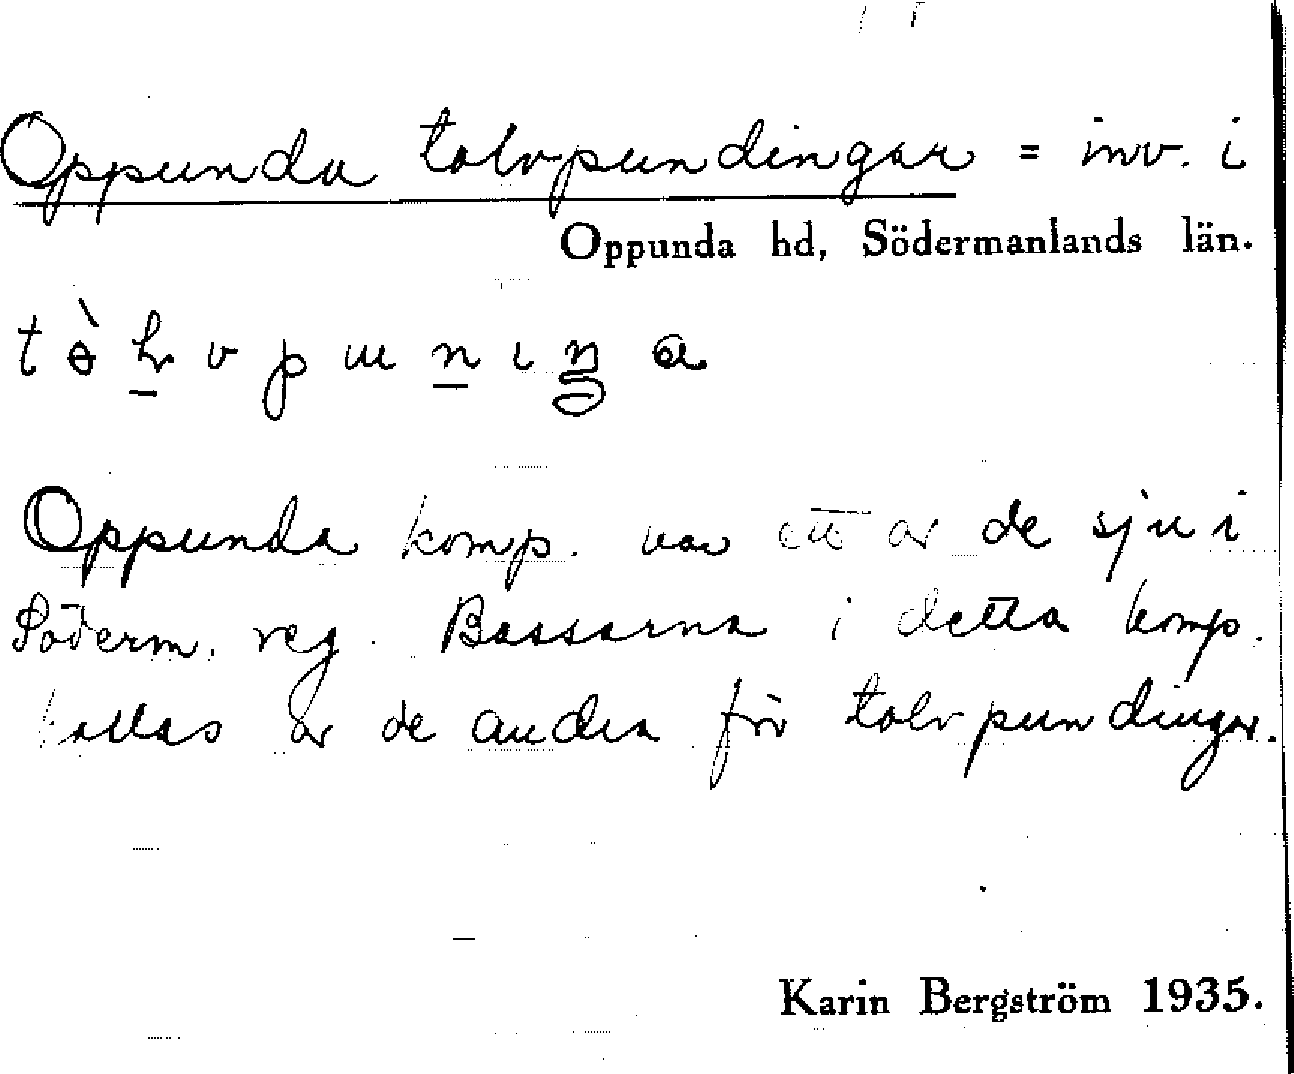 Oppunda tolvpundingar = inv. i
Oppunda hd, Södermanlands län.
Oppunda komp. var ett av de sju i
Söderm. reg. Bassarna i detta komp.
kallas av de andra för tolvpundingar.
Karin Bergström 1935.